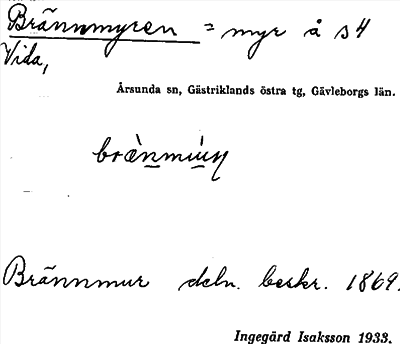 Brännmyren = myr å s4
Vida,
Årsunda sn, Gästriklands östra tg, Gävleborgs län.
Brännmur deln. beskr. 1869.
Ingegärd Isaksson 1933.